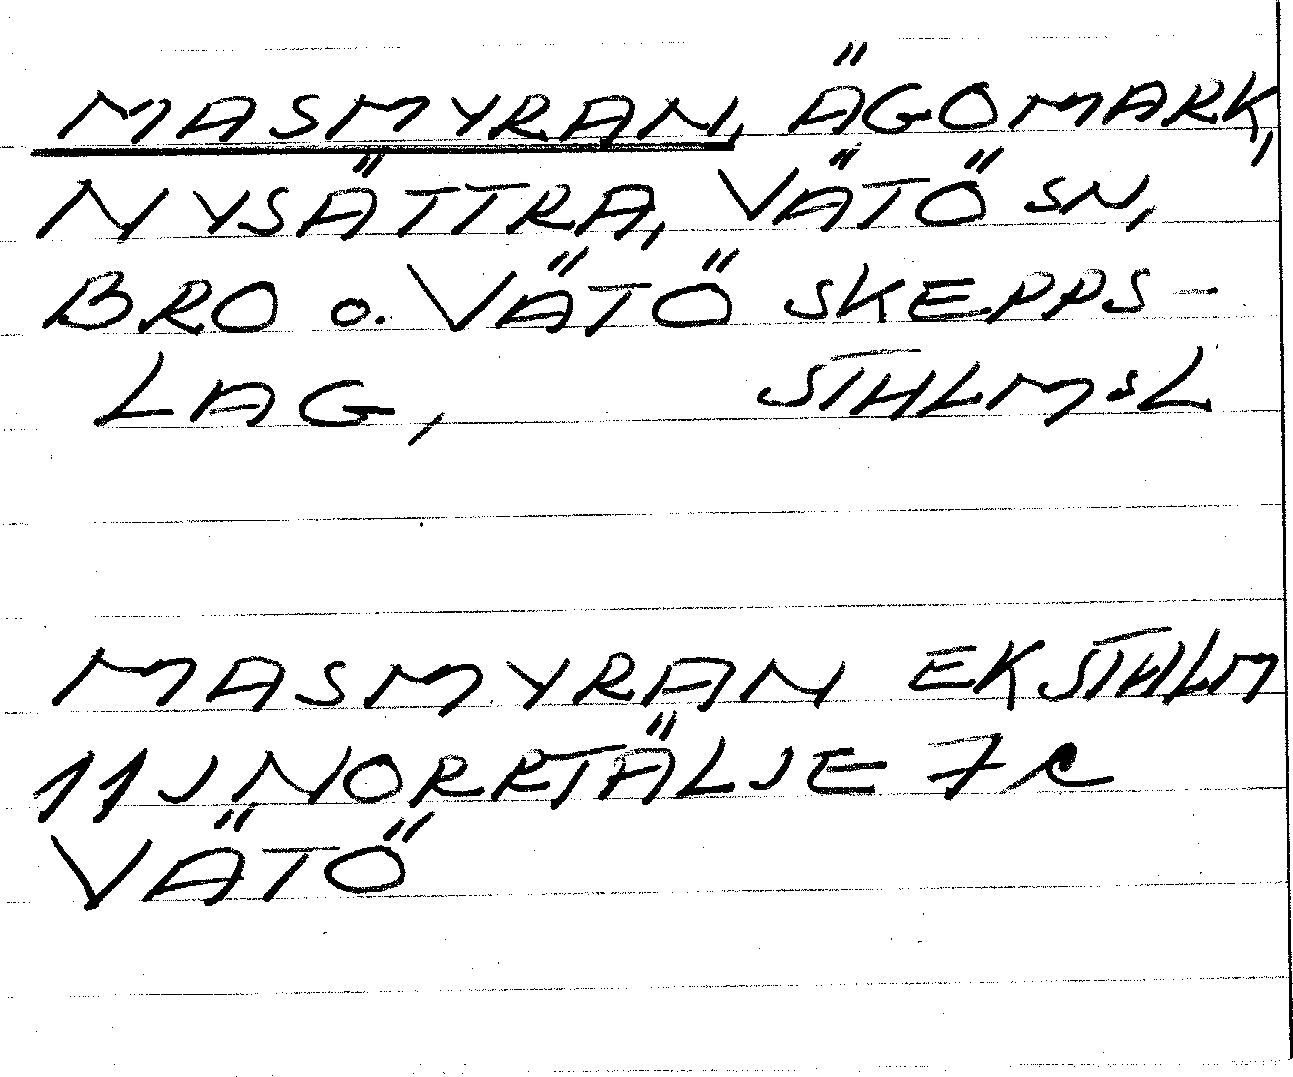 MASMYRAN, ÄGOMARK,
NYSÄTTRA, VÄTÖ SN,
BRO o. VÄTÖ SKEPPS-
LAG, STHLMSL
MASMYRAN EK STHLM
11J NORRTÄLJE 7c
VÄTÖ